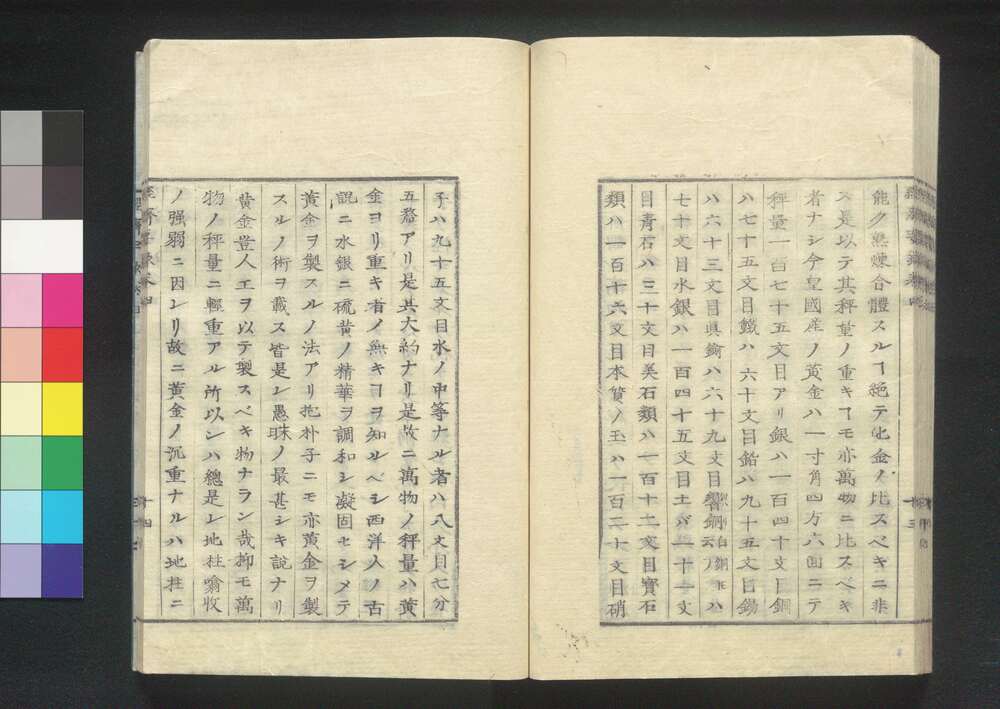 能ク懋煉合體スルヿ絶テ他金ノ比スベキニ非
ス是以テ其秤量ノ重キヿモ亦萬物ニ比スベキ
者ナシ今皇國産ノ黄金ハ一寸角四方六面ニテ
秤量一百七十五文目アリ銀ハ一百四十文目銅
ハ七十五文目鐵ハ六十文目鉛ハ九十五文目錫
ハ六十三文目眞鍮ハ六十九文目響銅ハ
七十文目水銀ハ一百四十五文目土ハ二十二文
目青石ハ三十文目美石類ハ一百十二文目寶石
類ハ一百十六文目本質ノ玉ハ一百二十文目硝
子ハ九十五文目水ノ中等ナル者ハ八文目七分
五釐アリ是其大約ナリ是故ニ萬物ノ秤量ハ黄
金ヨリ重キ者ノ無キヿヲ知ルベシ西洋人ノ古
説ニ水銀ニ硫黄ノ精華ヲ調和シ凝固セシメテ
黄金ヲ製スルノ法アリ抱朴子ニモ亦黄金ヲ製
スルノ術ヲ載ス皆是レ愚昧ノ最甚シキ説ナリ
黄金豈人工ヲ以テ製スベキ物ナラン哉抑モ萬
物ノ秤量ニ輕重アル所以ンハ總是レ地柱噏收
ノ强弱ニ因レリ故ニ黄金ノ沉重ナルハ地柱ニ